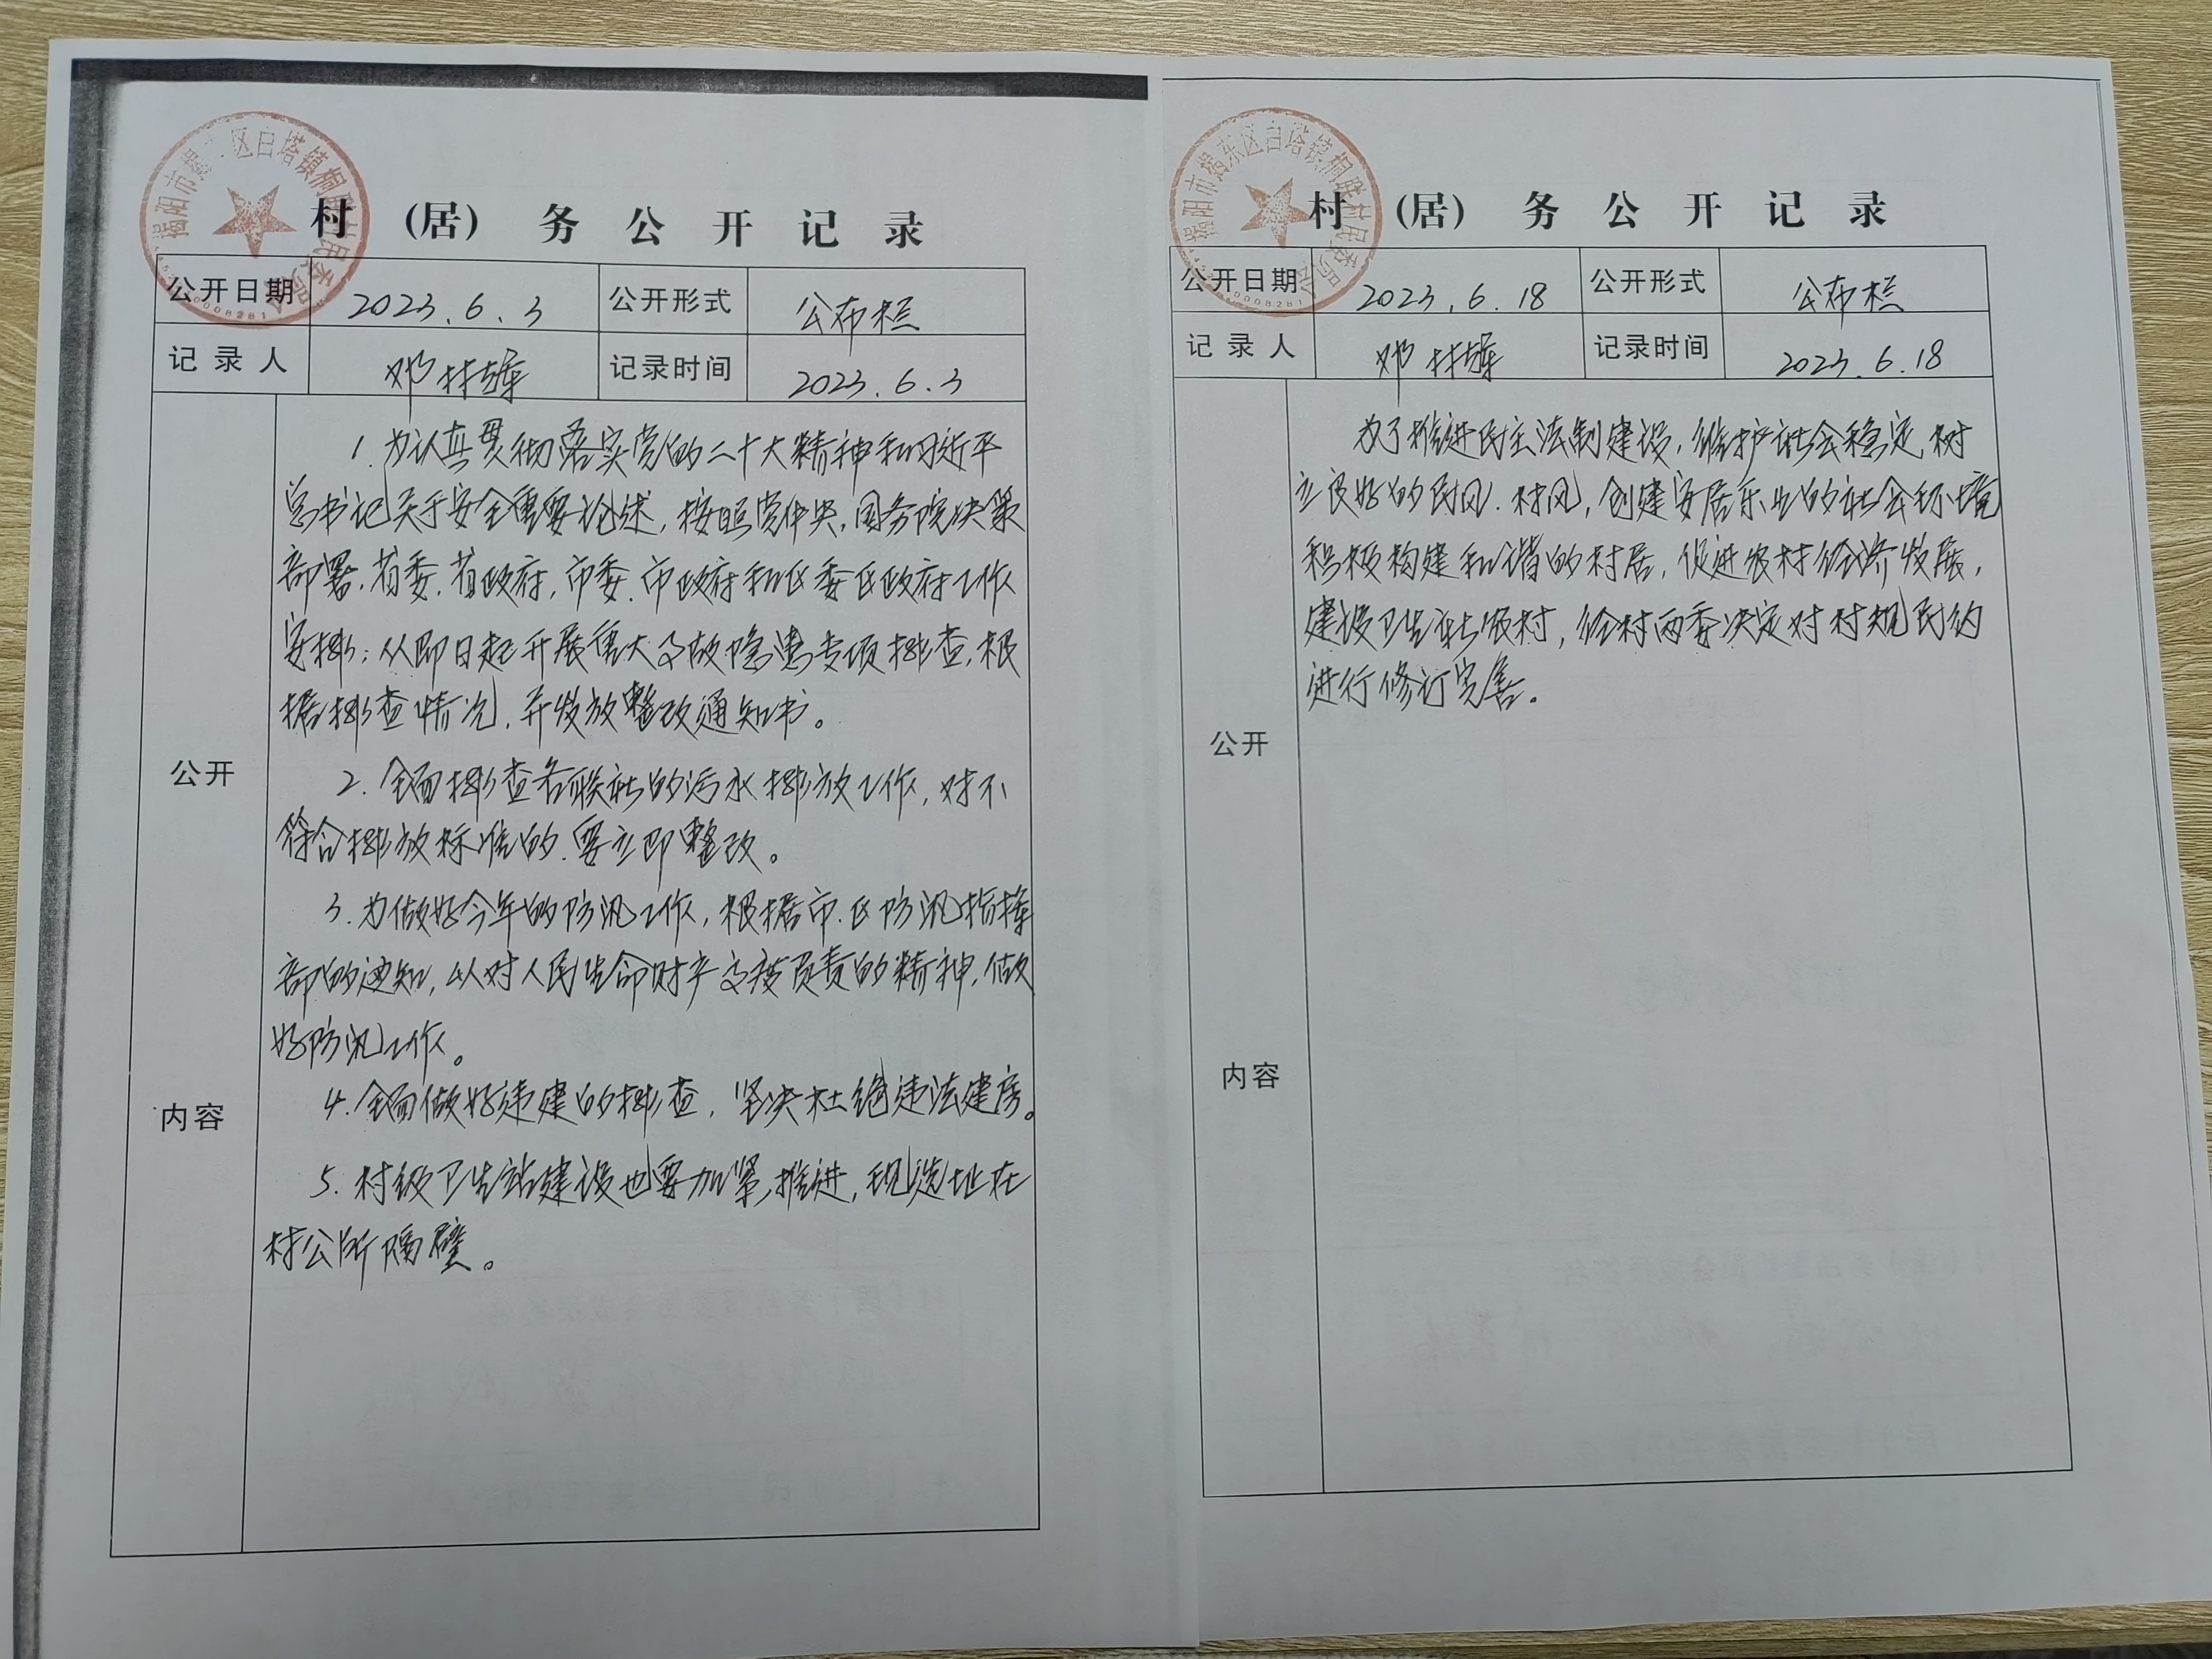 村（居）务公开记录
公开日期 2023.6.3 公开形式 公布栏
记录人 邓林雄 记录时间 2023.6.3
公开
内容
1.为认真贯彻落实党的二十大精神和习近平
总书记关于安全重要论述，按照党中央，国务院决策
部署，省委.省政府，市委.市政府和区委区政府工作
安排；从即日起开展重大事故隐患专项排查，根
据排查情况，并发放整改通知书。
2.全面排查各联社的污水排放工作，对不
符合排放标准的.要立即整改。
3.为做好今年的防汛工作，根据市.区防汛指挥
部的通知，以对人民生命财产高度负责的精神，做
好防汛工作。
4.全面做好违建的排查，坚决杜绝违法建房。
5.村级卫生站建设也要加紧推进，现选址在
村公所隔壁。
揭阳市揭东区白塔镇桐联村民委员会
村（居）务公开记录
公开日期 2023.6.18 公开形式 公布栏
记录人 邓林雄 记录时间 2023.6.18
公开
内容
为了推进民主法制建设，维护社会稳定，树
立良好的民风.村风，创建安居乐业的社会环境
积极构建和谐的村居，促进农村经济发展，
建设卫生新农村，经村两委决定对村规民约
进行修订完善。